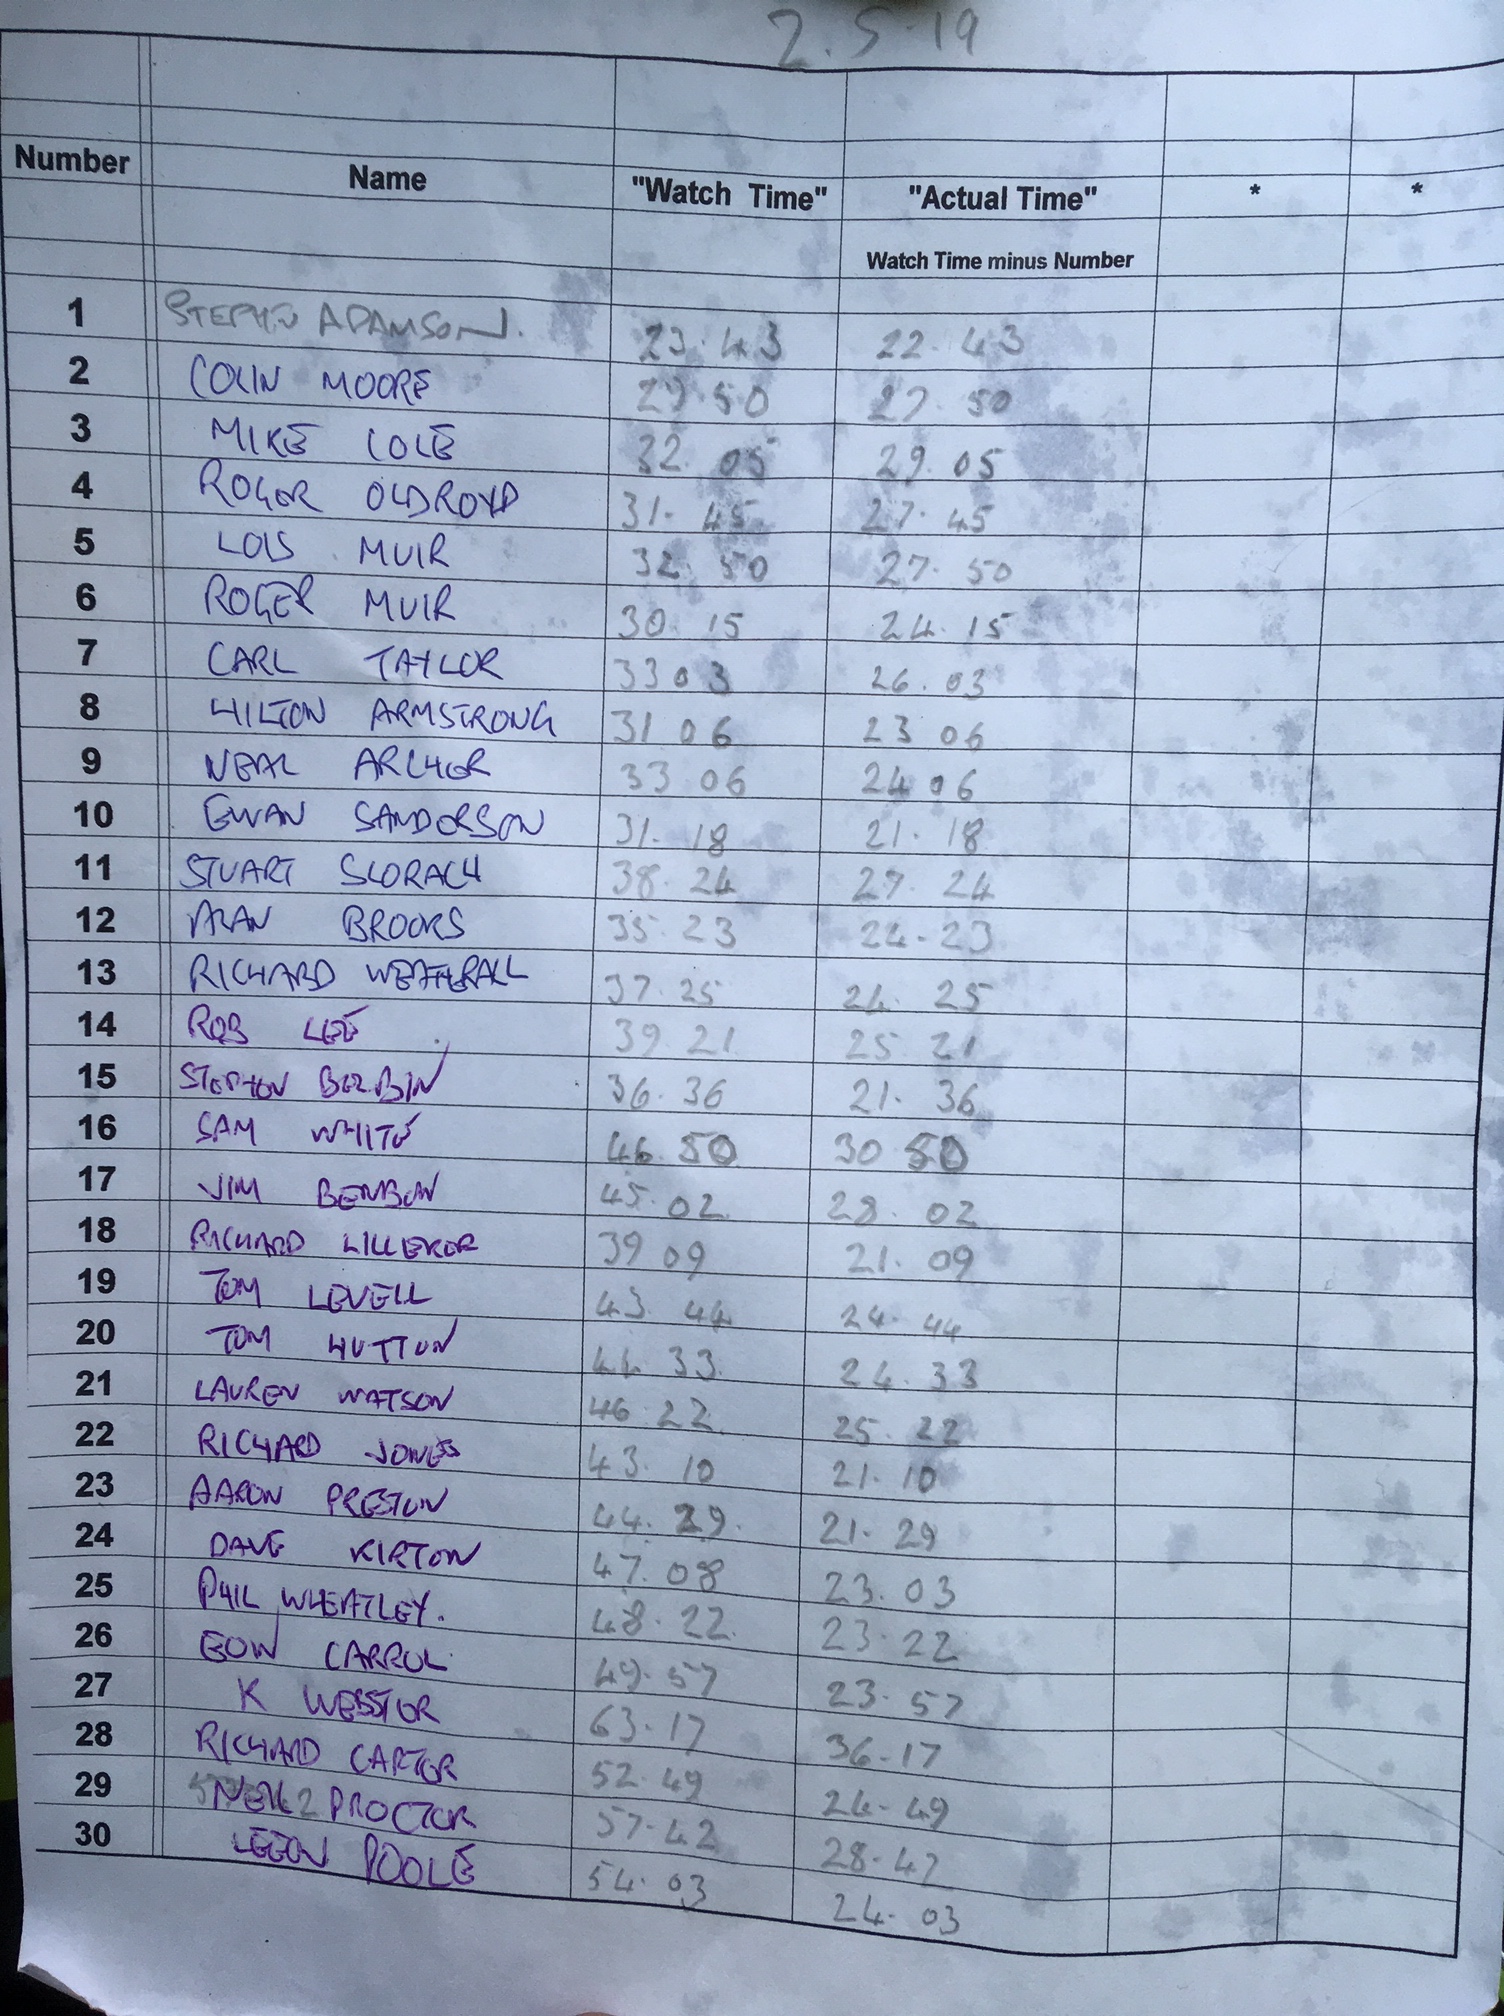 2.5.19
Number Name "Watch Time" "Actual Time" * *
Watch Time minus Number
1 STEPHEN ADAMSON. 23.43 22.43
2 COLIN MOORE 29.50 27.50
3 MIKE COLE 32.05 29.05
4 ROGER OLDROYD 31.45 27.45
5 LOIS MUIR 32.50 27.50
6 ROGER MUIR 30.15 24.15
7 CARL TAYLOR 33 03 26.03
8 HILTON ARMSTRONG 31 06 23 06
9 NEAL ARCHER 33 06 24 06
10 EWAN SANDERSON 31.18 21.18
11 STUART SLORACH 38.24 27.24
12 ALAN BROOKS 35.23 24-23
13 RICHARD WETHERALL 37.25 24 25
14 ROB LEE 39.21 25 21
15 STEPHEN 36.36 21.36
16 SAM WHITE 46.50 30 50
17 JIM BENBOW 45.02 28.02
18 RICHARD LILLEKER 39 09 21.09
19 TOM LEVELL 43.44 24.44
20 TOM HUTTON 44 33 24.33
21 LAUREN WATSON 46 22 25.22
22 RICHARD JONES 43.10 21.10
23 AARON PRESTON 44.29. 21.29
24 DAVE KIRTON 47.08 23.03
25 PHIL WHEATLEY. 48.22 23.22
26 CARROL 49.57 23.57
27 K WEBSTER 63.17 36-17
28 RICHARD CARTER 52.49 24-49
29 NEIL PROCTOR 57-42 28-42
30 LEEON POOLE 54.03 24.03